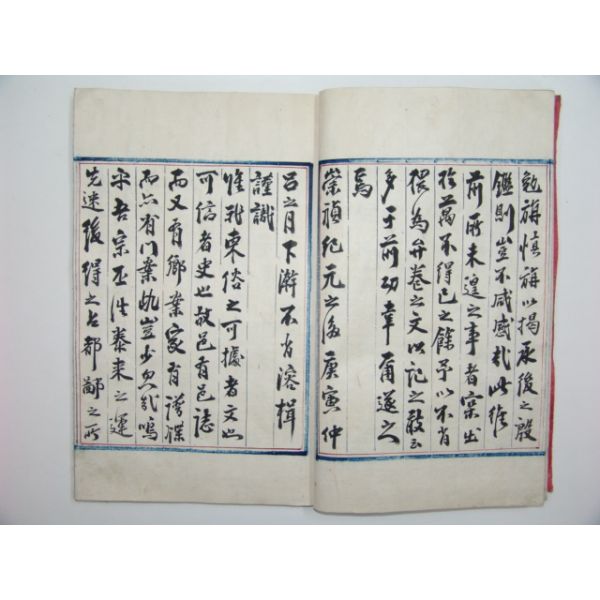 勉旃慎旃以揭承後之殷
鑑則豈不咸感哉此后
前所未遑之事者寔出
於萬不得已之餘予以不肖
猥為弁卷之文以記之敢云
多于前功聿甫遂之
焉
崇禎紀元之後庚寅仲
呂之月下澣不肖溶楫
謹識
惟我東俗之可據者文也
可信者史也故邑有邑誌
而又有鄉案家有譜牒
而亦有門案此豈少忽哉嗚
乎吾宗丕泰來之運
先迷後得之占都鄙之所